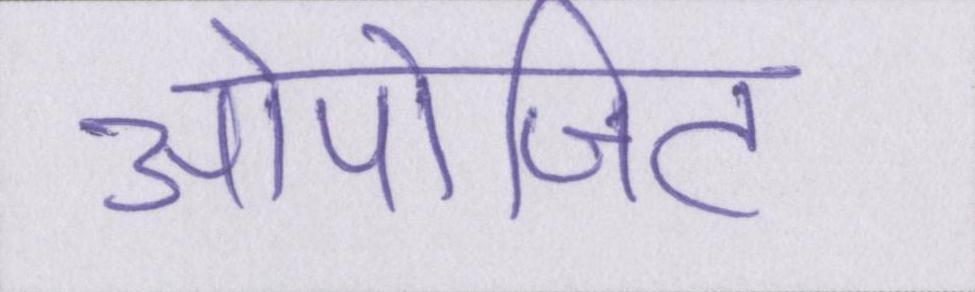 ओपोजिट